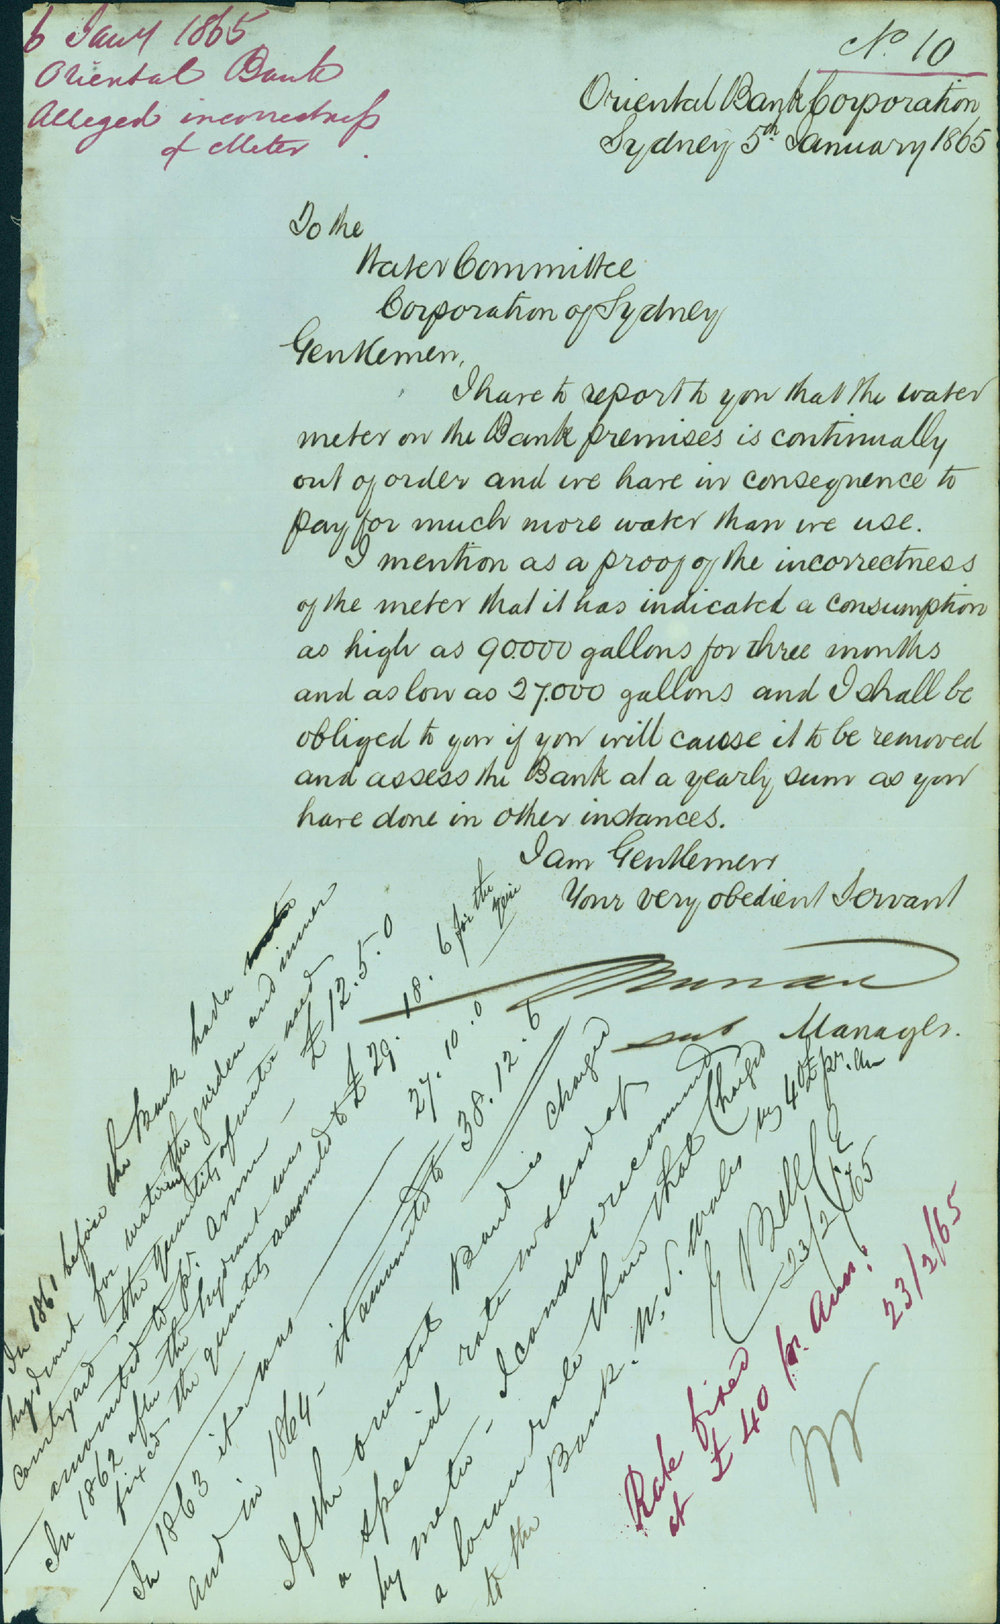 6 Jany 1865
Oriental Bank
Alleged incorrectness
of Meter
No. 10
Oriental Bank Corporation
Sydney 5th January 1865
To the
Water Committee
Corporation of Sydney
Gentlemen,
I have to report to you that the water
meter on the Bank premises is continually
out of order and we have in consequence to
pay for much more water than we use.
I mention as a proof of the incorrectness
of the meter that it has indicated a consumption
as high as 90.000 gallons for three months
and as low as 27.000 gallons and I shall be
obliged to you if you will cause it to be removed
and assess the Bank at a yearly sum as you
have done in other instances.
I am Gentlemen
Your very obedient Servant
sub Manager.
In 1861 before the Bank had a
hydrant for watering the garden and inner
Courtyard the quantity of water used
amounted to pr. annum - £12.5.0
In 1862 after the hydrant was
fixed the quantity amounted to £29.18.6 for the year
In 1863 it was 27.10.0
and in 1864 - it amounted to 38.12.6
If the oriental Bank is charged
a special rate instead of
by meter - I cannot recommend
a lower rate than that charged
to the Bank. N. S. Wales vis 40£ pr. An
E Bell CE
23/2/65
Rate fixed
at £40 pr. Ann.
23/2/65